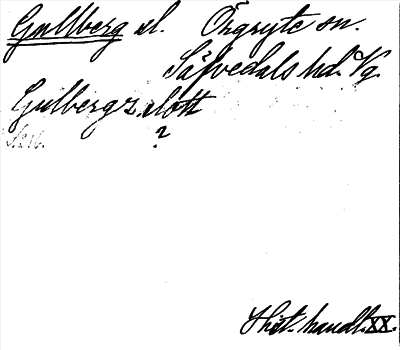 Gullberg sl. Örgryte sn.
Säfvedals hd. Vg.
Gulbergz slott
?
Hist. handl. XX.